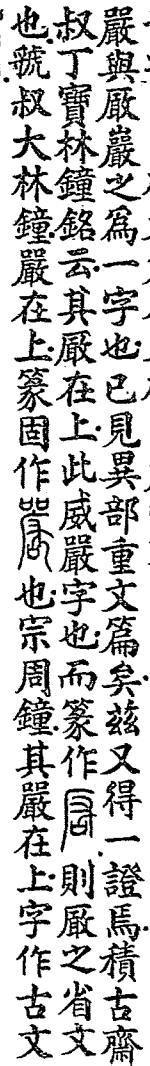 嚴與厰巖之爲一字也已見異部重文篇矣兹又得一證焉積古齋
叔丁寶林鐘銘云其厰在上此威嚴字也而篆作則厰之省文
也虢叔大林鐘嚴在上篆固作也宗周鐘其嚴在上字作古文